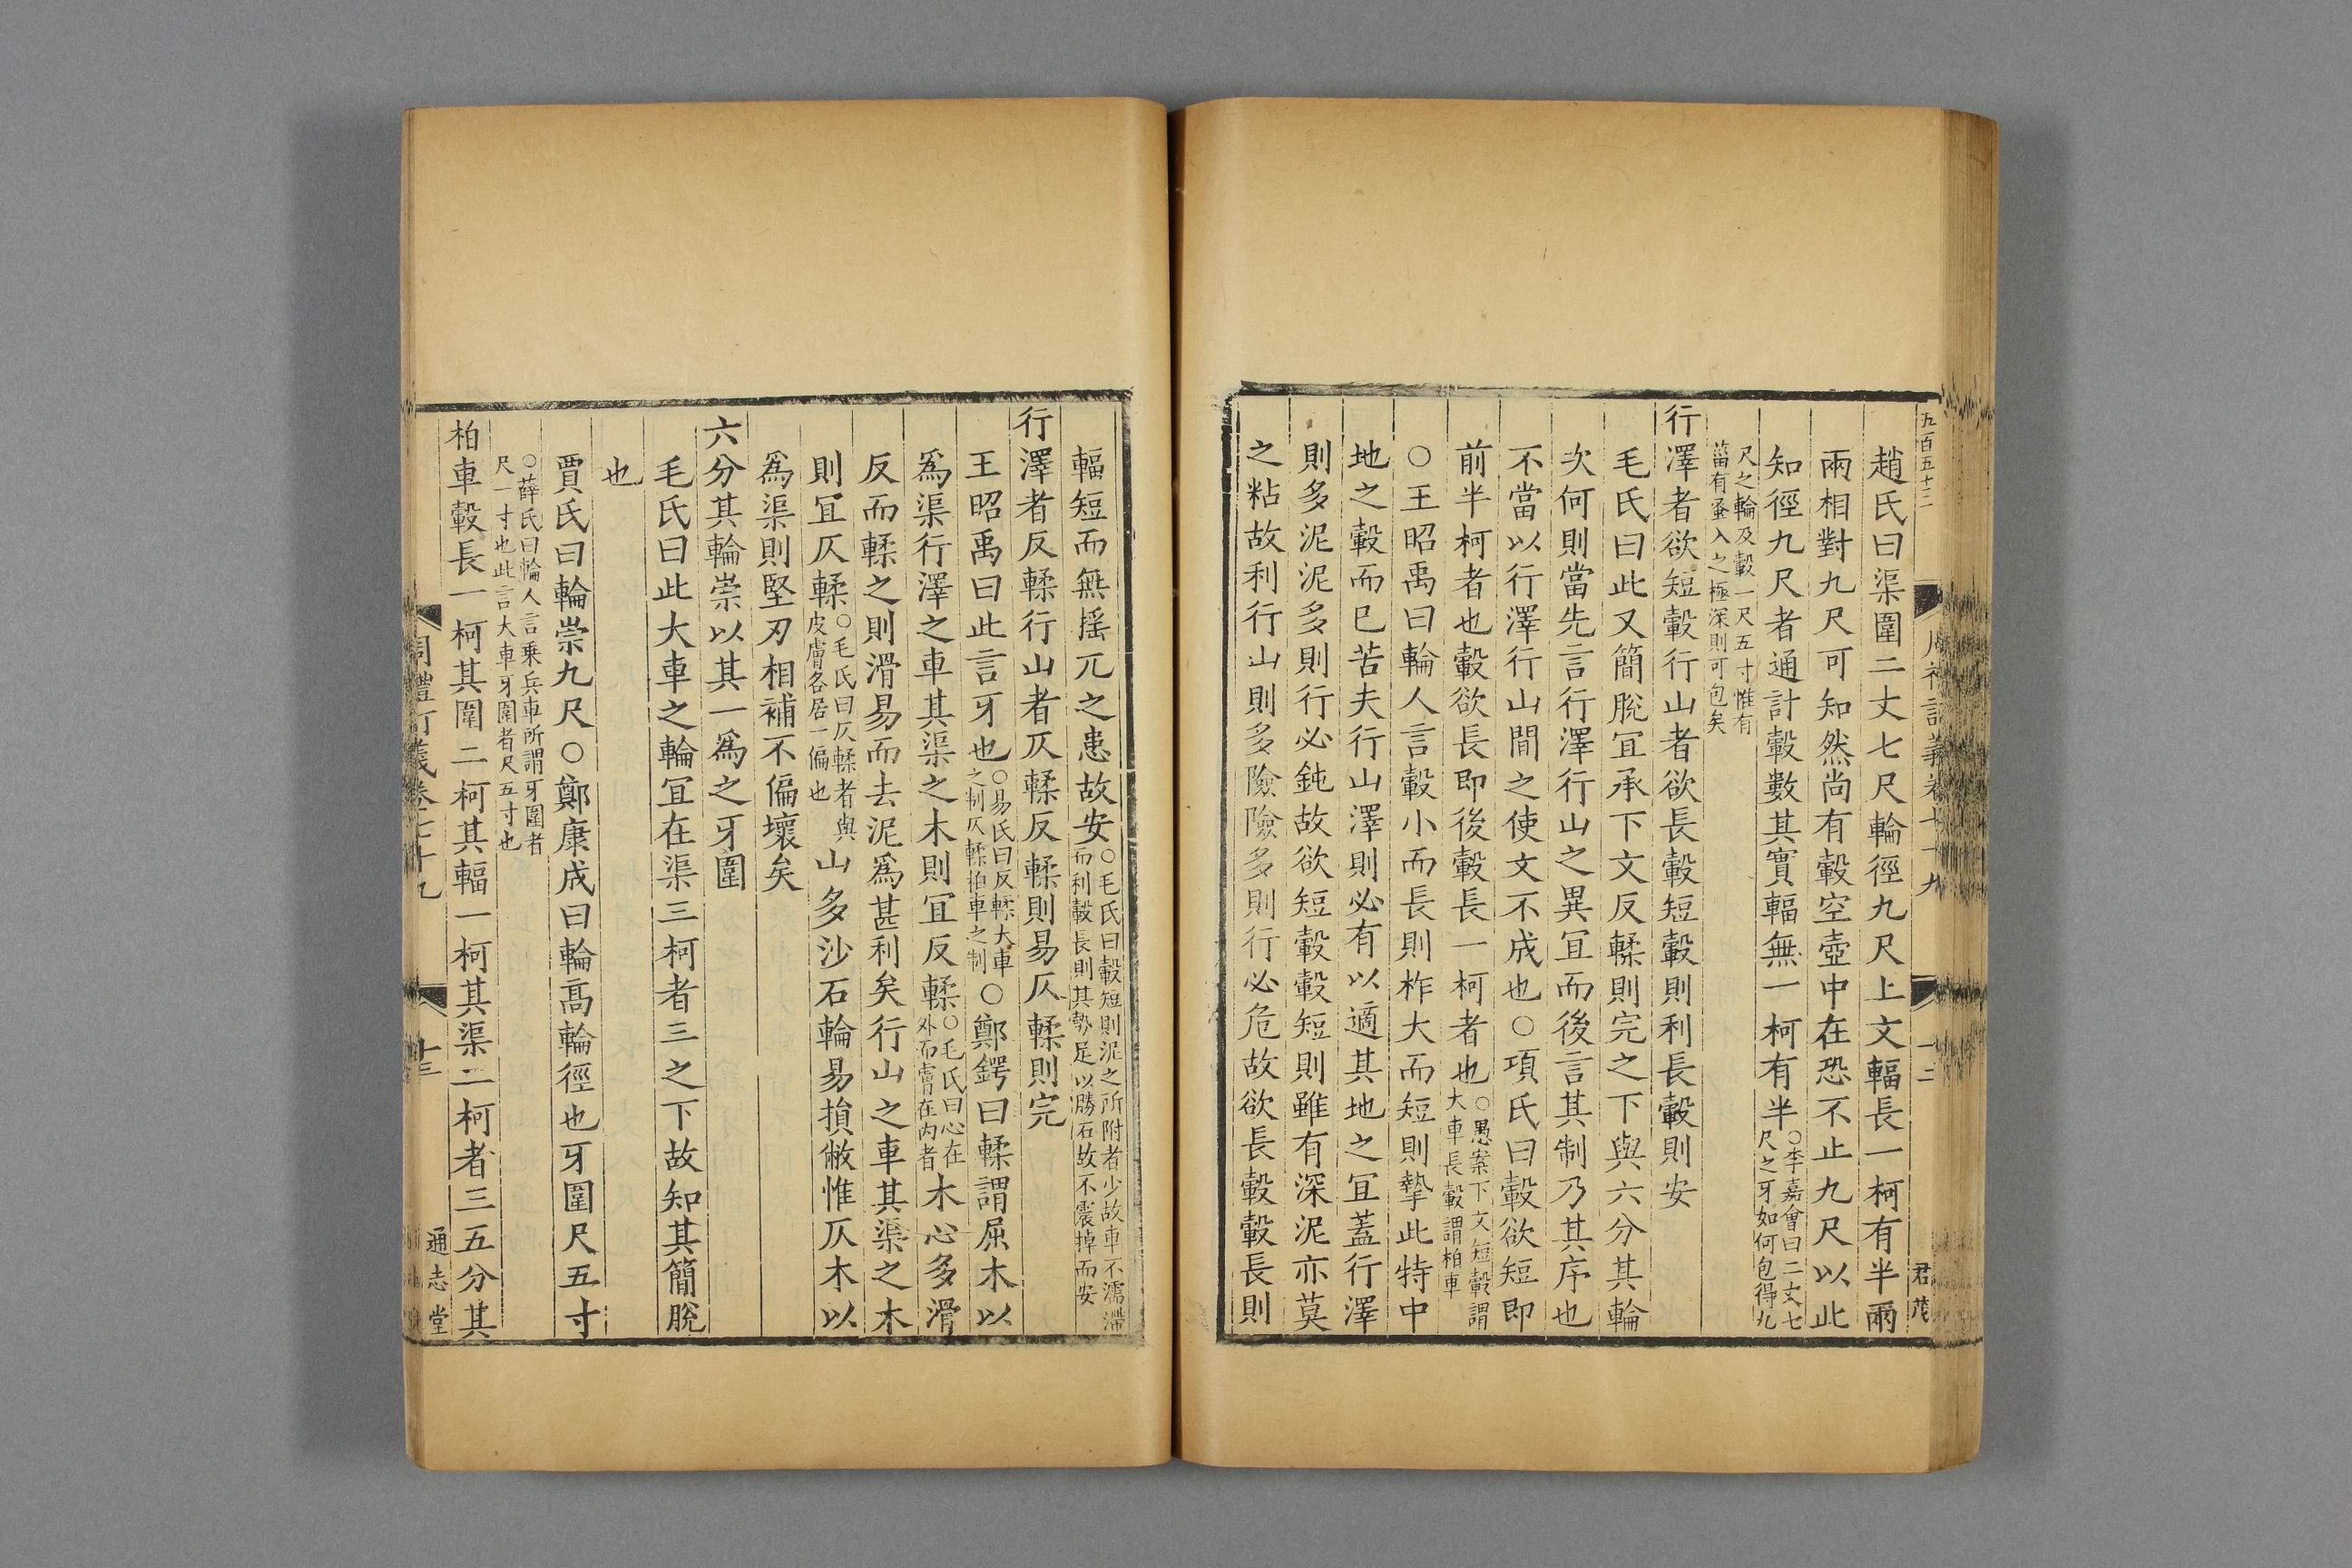 五百五十二
君茂
趙氏曰渠圍二丈七尺輪徑九尺上文輻長一柯有半兩
兩相對九尺可知然尚有轂空壺中在恐不止九尺以此
知徑九尺者通計轂數其實輻無一柯有半○李嘉會曰二丈七
尺之牙如何包得九
尺之輪及轂一尺五寸惟有
菑有蚤入之極深則可包矣
行澤者欲短轂行山者欲長轂短轂則利長轂則安
毛氏曰此又簡脫冝承下文反輮則完之下與六分其輪
次何則當先言行澤行山之異冝而後言其制乃其序也
不當以行澤行山間之使文不成也○項氏曰轂欲短即
前半柯者也轂欲長即後轂長一柯者也○愚案下文短轂謂
大車長轂謂柏車
○王昭禹曰輪人言轂小而長則柞大而短則摯此特中
地之轂而已苦夫行山澤則必有以適其地之冝蓋行澤
則多泥泥多則行必鈍故欲短轂轂短則雖有深泥亦莫
之粘故利行山則多險險多則行必危故欲長轂轂長則
輻短而無揺兀之患故安○毛氏曰轂短則泥之所附者少故車不濡滯
而利轂長則其勢足以勝石故不震掉而安
行澤者反輮行山者仄輮反輮則易仄輮則完
王昭禹曰此言牙也○易氏曰反輮大車
之制仄輮柏車之制○鄭鍔曰輮謂屈木以
爲渠行澤之車其渠之木則冝反輮○毛氏曰心在
外而膚在內者木心多滑
反而輮之則滑易而去泥爲甚利矣行山之車其渠之木
則冝仄輮○毛氏曰仄輮者與
皮膚各居一偏也山多沙石輪易損敝惟仄木以
爲渠則堅刃相補不偏壞矣
六分其輪崇以其一爲之牙圍
毛氏曰此大車之輪冝在渠三柯者三之下故知其簡脫
也
賈氏曰輪崇九尺○鄭康成曰輪高輪徑也牙圍尺五寸
○薛氏曰輪人言乗兵車所謂牙圍者
尺一寸也此言大車牙圍者尺五寸也
柏車轂長一柯其圍二柯其輻一柯其渠二柯者三五分其
通志堂